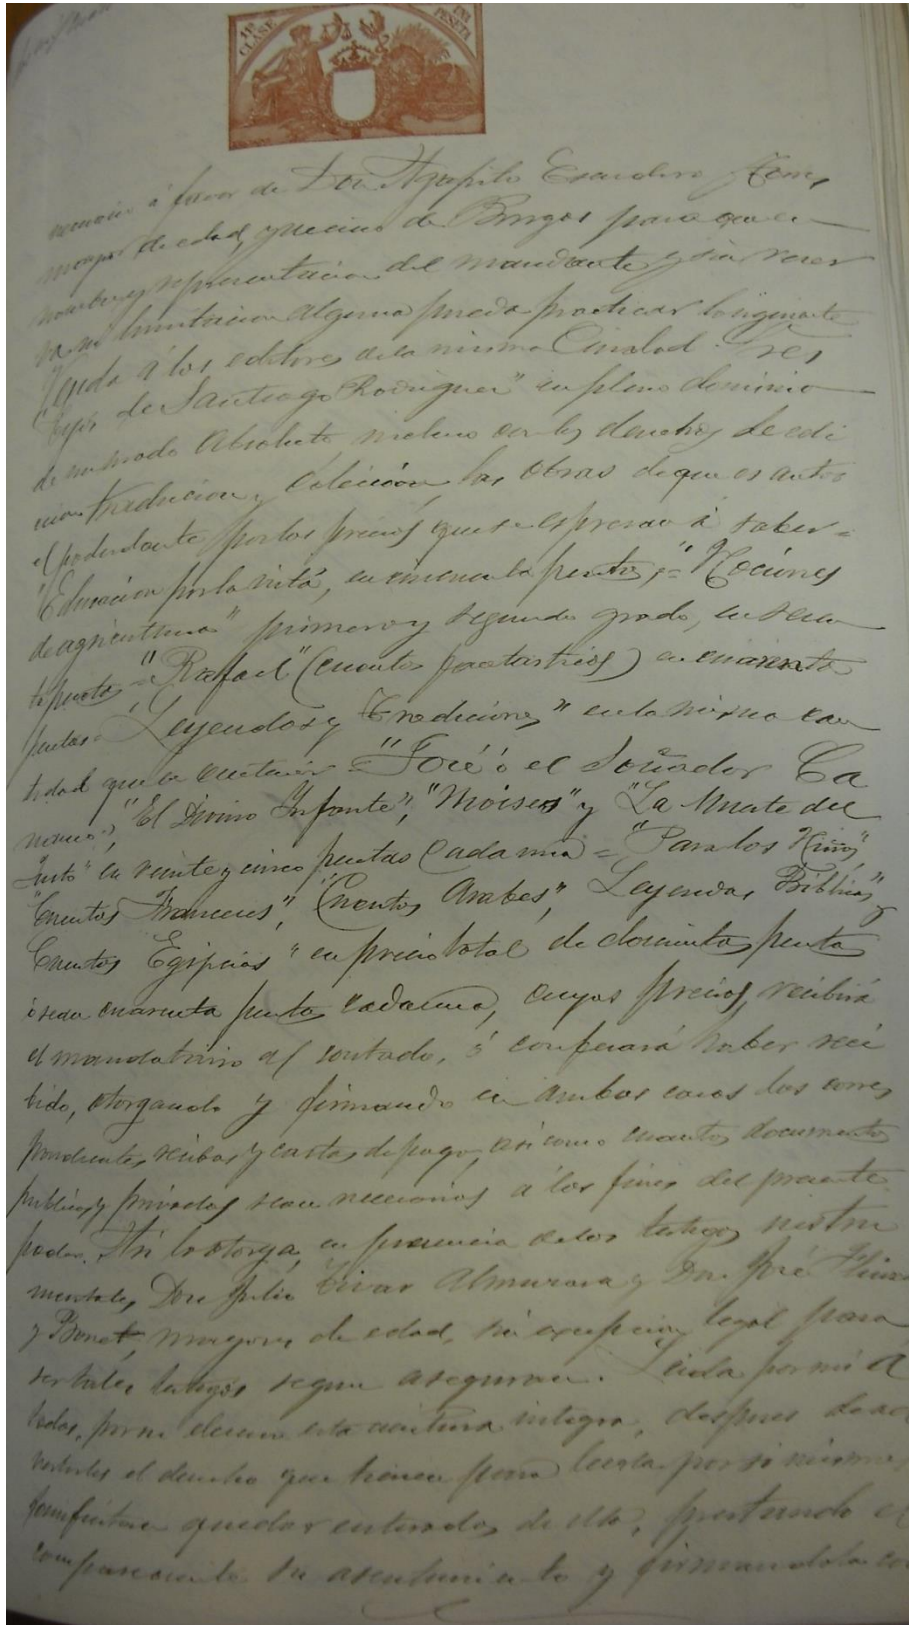 11ª CLASE UNA PESETA
á favor de Don Agapito Escudero
mayor de edad, y vecino de Burgos para que en
nombre y representacion del mandante y sin reser
va ni limitacion alguna pueda practicar lo siguiente
Venda á los editores de la misma Ciudad
Hijos de Santiago Rodriguez" en pleno dominio
de un modo absoluto, incluso con los derechos de edi
cion traducion y colección, las obras de que es autor
el poderdante por los precios que se espresan á saber =
"Educacion por la vista, en cincuenta pesetas, = "Nociones
de agricultura" primero y segundo grado, en sesen
ta pesetas = "Rafael" (cuentos fantasticos) en cincuenta
pesetas = Leyendas y Tradiciones" en la misma can
tidad que la anterior = "José ó el Soñador Ca
naneo", "El Divino Infante", "Moises" y "La Muerte del
Justo" en veinte y cinco pesetas cada una = "Para los Niños"
"Cuentos Franceses", "Cuentos Arabes", Leyendas Biblicas" y
Cuentos Egipcios" en precio total de doscientas pesetas
ó sean cuarenta pesetas cada una, cuyos precios, recibirá
el mandatario al contado, ó confesará haber reci
bido, otorgando y firmando en ambos casos los corres
pondientes recibos y cartas de pago, asi como cuantos documentos
publicos y privados sean necesarios á los fines del presente
poder. Asi lo otorga, en presencia de los testigos instru
mentales, Don Julio Vivar Almarara y Don José
y Bonet, mayores de edad, sin excepcion legal para
ser tales testigos segun aseguran. Leida por mi á
todos, por su eleccion esta escritura integra, despues de ad
vertirles el derecho que tienen para leerla por si mismos
manifiestan quedar enterados de ella, prestando el
compareciente su asentimiento y firmandola con